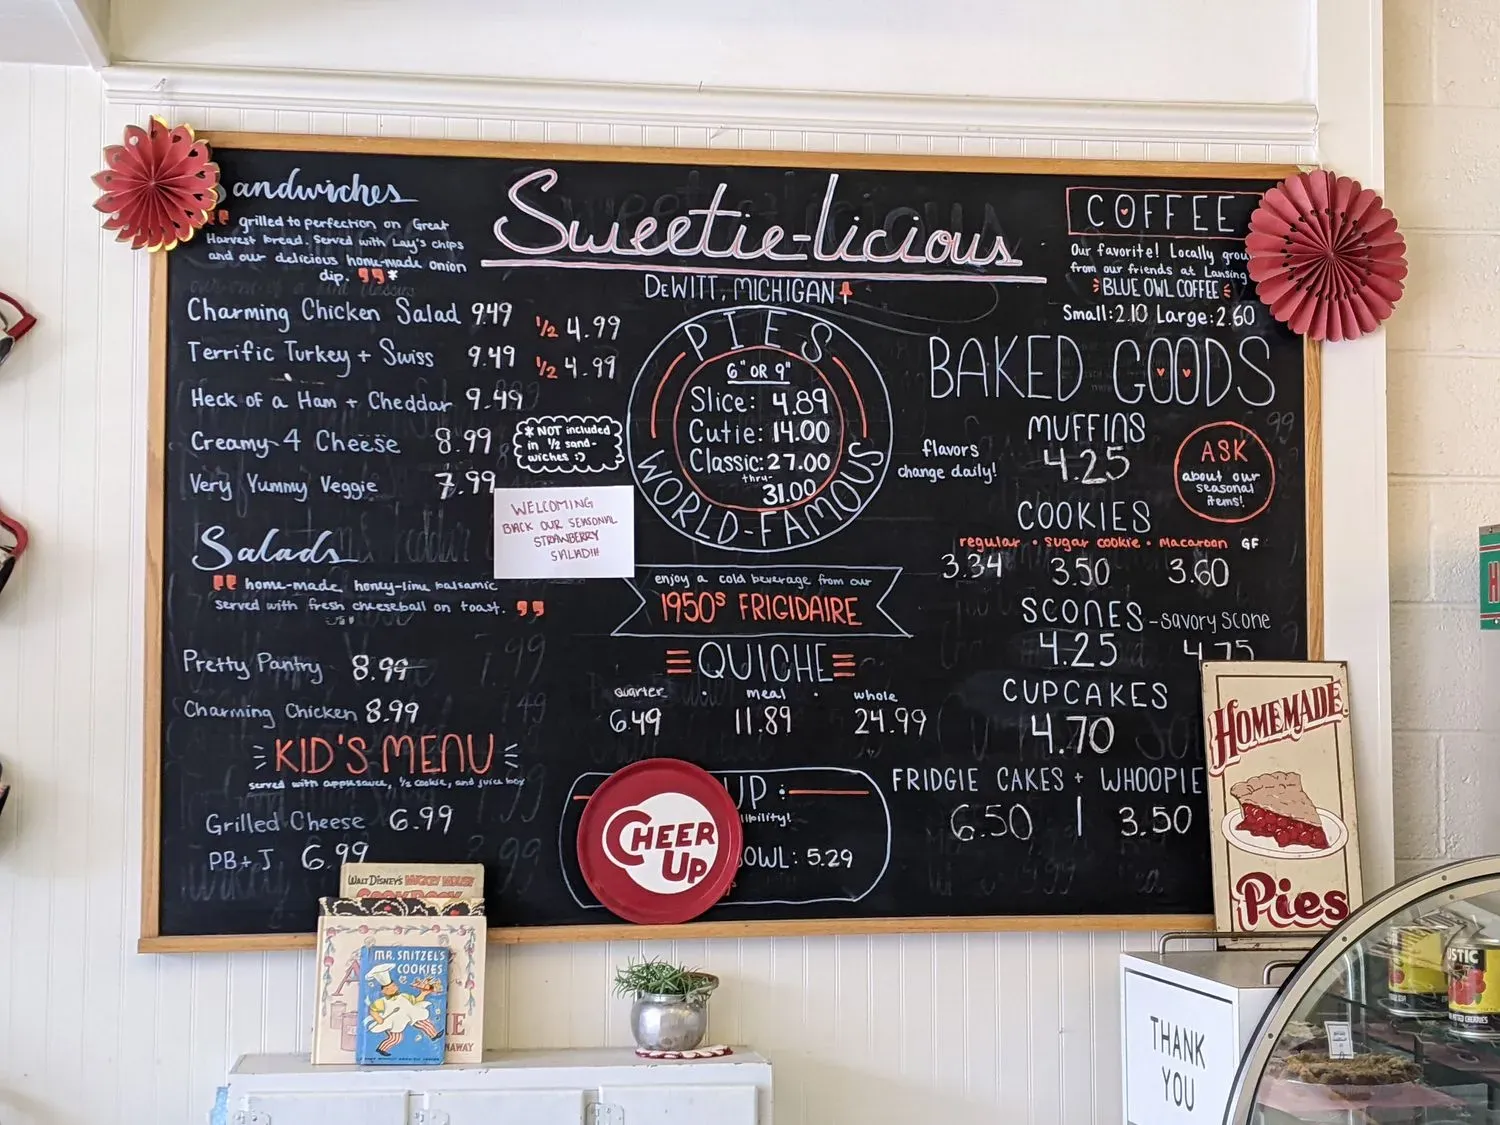 Sandwiches
grilled to perfection on Great
Harvest bread. Served with Lay's chips
and our delicious home-made onion
dip. *
Charming Chicken Salad 9.49 1/2 4.99
Terrific Turkey + Swiss 9.49 1/2 4.99
Heck of a Ham + Cheddar 9.49
Creamy 4 Cheese 8.99
Very Yummy Veggie 7.99
* NOT included
in 1/2 sand-
wiches :)
WELCOMING
BACK OUR SEASONAL
STRAWBERRY
SALAD!!!
Salads
home-made honey-lime balsamic
served with fresh cheeseball on toast.
Pretty Pantry 8.99
Charming Chicken 8.99
KID'S MENU
served with applesauce, 1/2 cookie, and juice box
Grilled Cheese 6.99
PB+J 6.99
Sweetie-licious
DeWITT, MICHIGAN
PIES
6" OR 9"
Slice: 4.89
Cutie: 14.00
Classic: 27.00
thru
31.00
WORLD-FAMOUS
enjoy a cold beverage from our
1950s FRIGIDAIRE
QUICHE
quarter · meal · whole
6.49 11.89 24.99
UP:
OWL: 5.29
CHEER
UP
COFFEE
Our favorite! Locally
from our friends at Lansing
BLUE OWL COFFEE
Small: 2.10 Large: 2.60
BAKED GOODS
MUFFINS
flavors
change daily!
4.25
ASK
about our
seasonal
items!
COOKIES
regular · sugar cookie · macaroon GF
3.34 3.50 3.60
SCONES - savory scone
4.25 4.75
CUPCAKES
4.70
FRIDGIE CAKES + WHOOPIE
6.50 | 3.50
HOMEMADE
Pies
WALT DISNEY'S MICKEY MOUSE
COOKBOOK
MR. SNITZEL'S
COOKIES
THANK
YOU